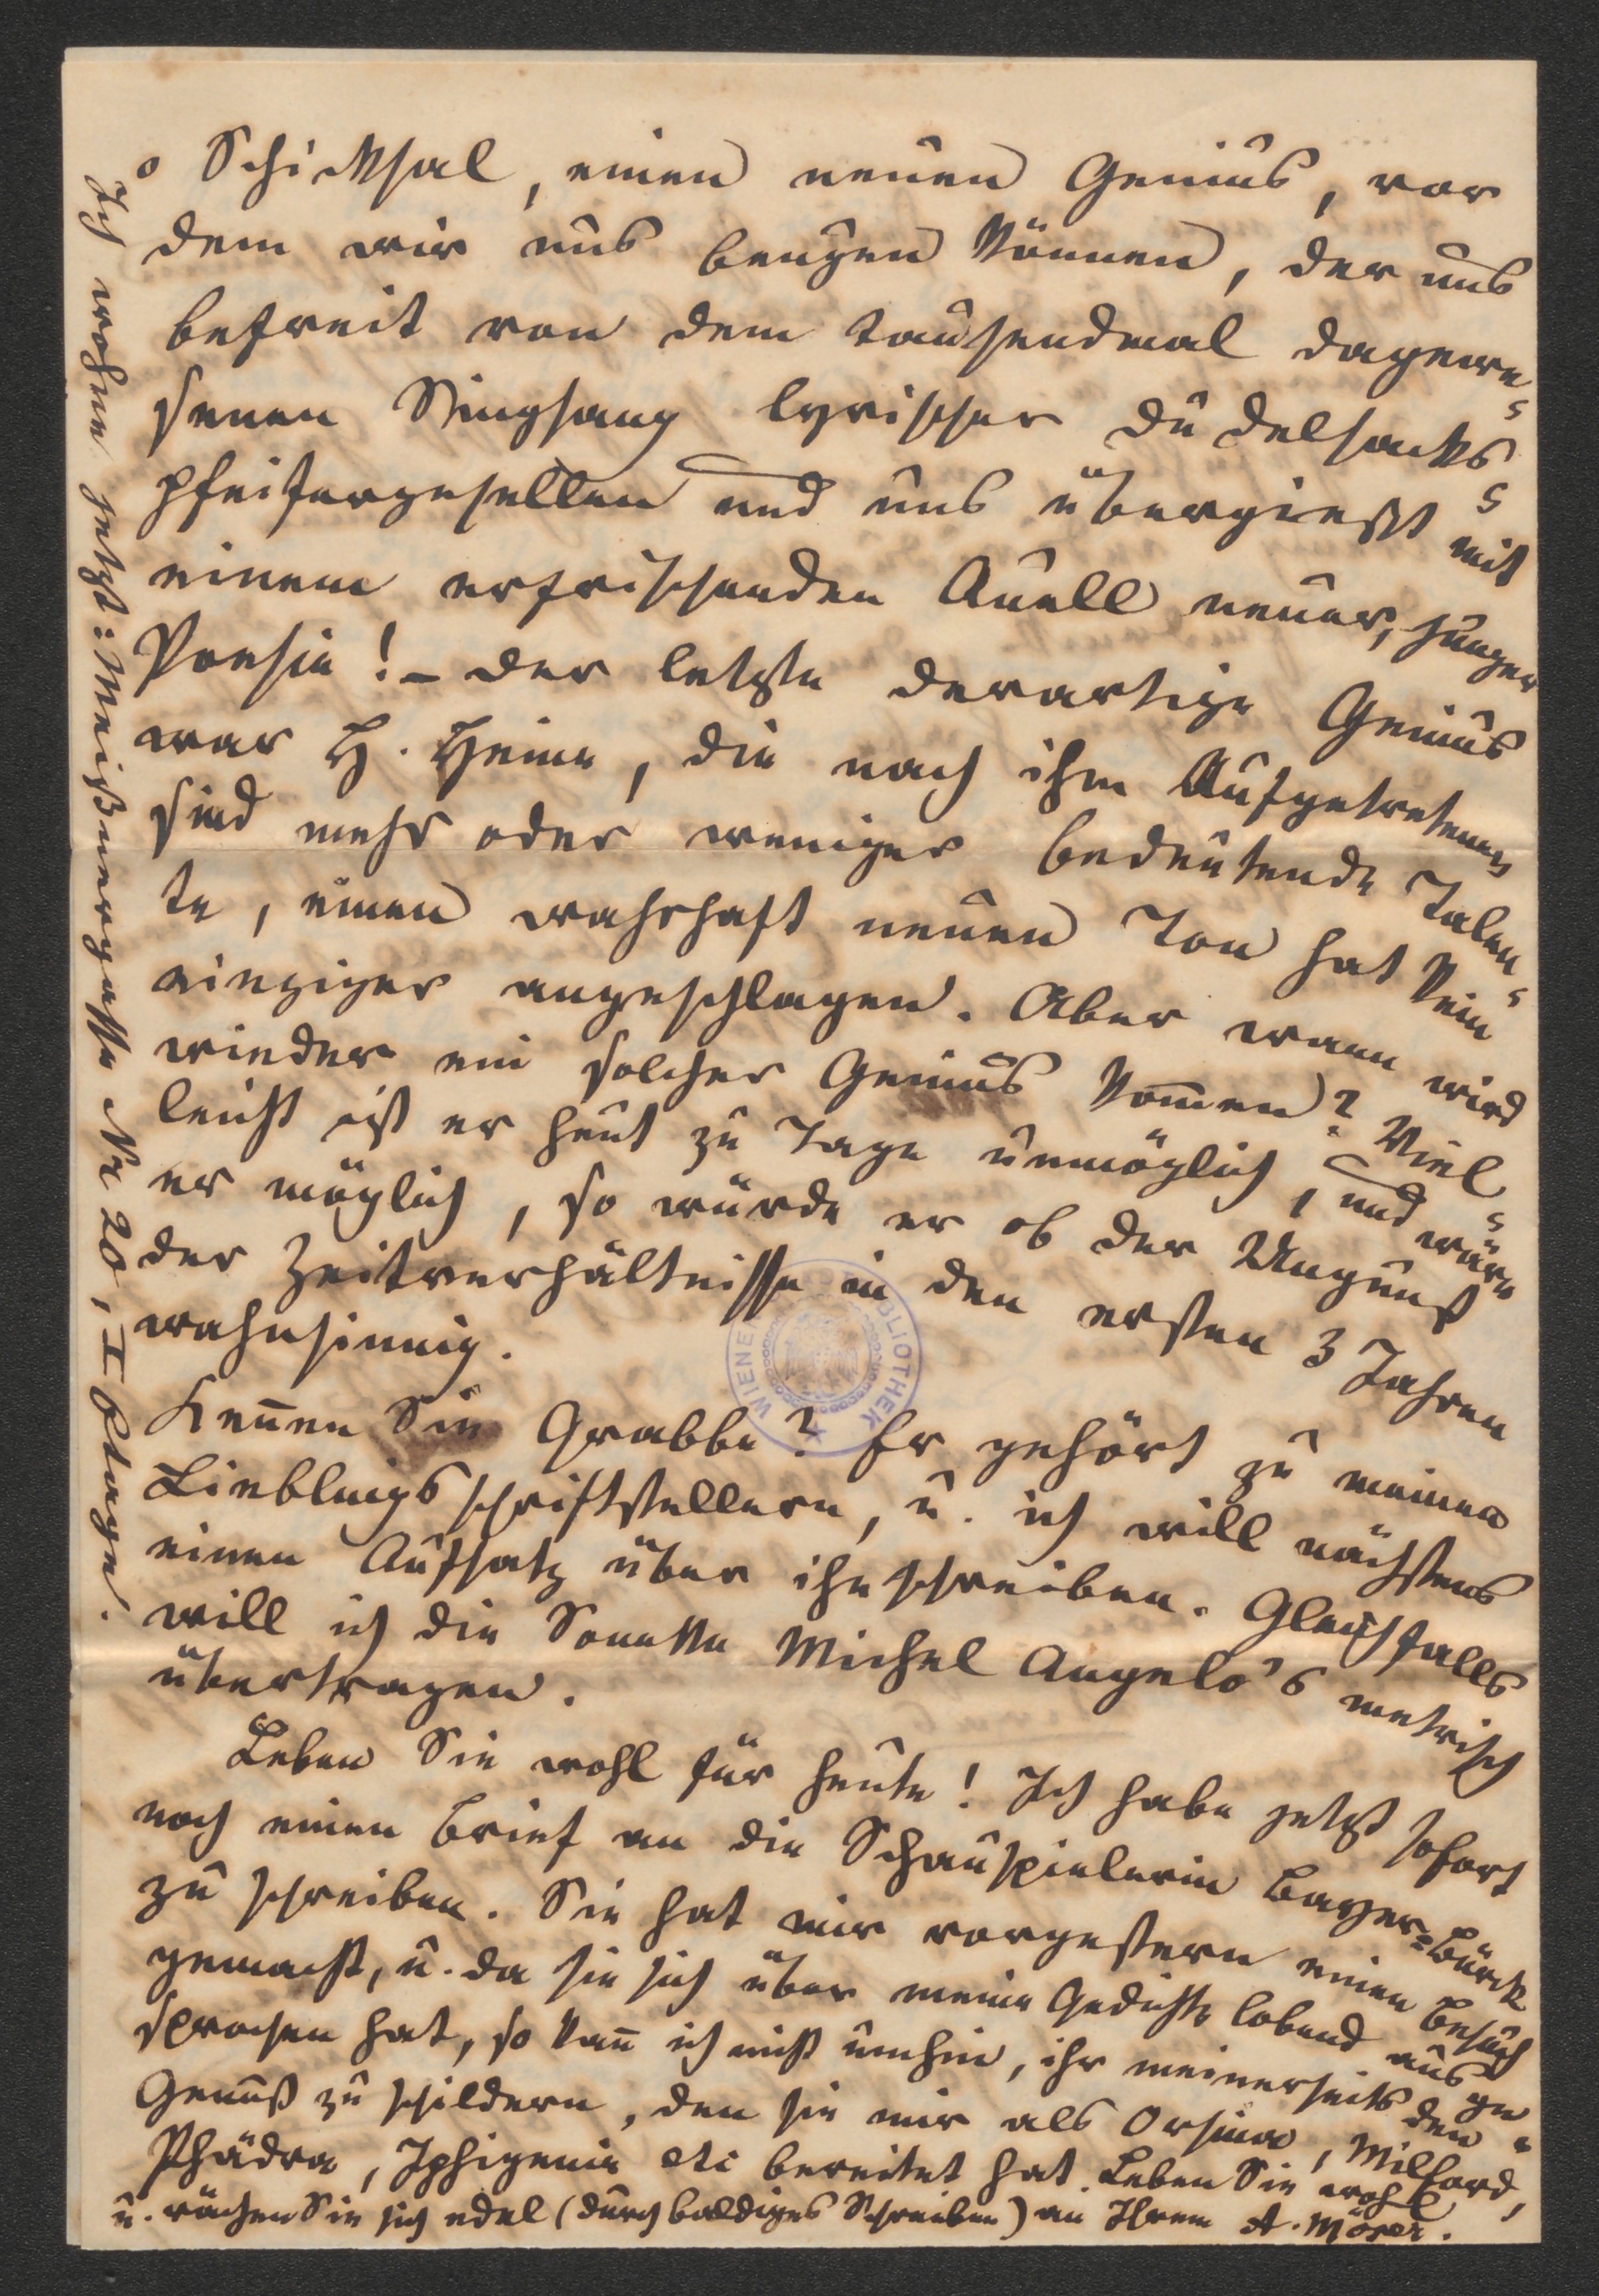 o Schicksal, einen neuen Genius, vor
dem wir uns beugen können, der uns
befreit von dem tausendmal dagewe-
senen Singsang lyrischer Dudelsacks-
pfeifergesellen und uns übergießt mit
einem erfrischenden Quell neuer, junger
Poesie! – Der letzte derartige Genius
war H. Heine, die nach ihm Aufgetretenen
sind mehr oder weniger bedeutende Talen-
te, einen wahrhaft neuen Ton hat kein
einziger angeschlagen. Aber wann wird
wieder ein solcher Genius kom̄en? Viel-
leicht ist er heut zu Tage unmöglich, und wäre
er möglich, so würde er ob der Ungunst
der Zeitverhältnisse in den ersten 3 Jahren
wahnsinnig.
Ken̄en Sie Grabbe? Er gehört zu meinen
Lieblingsschriftstellern, u. ich will nächstens
einen Aufsatz über ihn schreiben. Gleichfalls
will ich die Sonette Michel Angelo's metrisch
übertragen.
Leben Sie wohl für heute! Ich habe jetzt sofort
noch einen Brief an die Schauspielerin Bayer-Bürck
zu schreiben. Sie hat mir vorgestern einen Besuch
gemacht, u. da sie sich über meine Gedichte lobend ausge-
sprochen hat, so kan̄ ich nicht umhin, ihr meinerseits den
Genuß zu schildern, den sie mir als Orsina, Milford,
Phädra, Iphigenie etc bereitet hat. Leben Sie wohl
u. rächen Sie sich edel (durch baldiges Schreiben) an Ihrem A. Möser.
Ich wohne jetzt: Meißnergasse Nr 20, I Etage.
WIENER BIBLIOTHEK